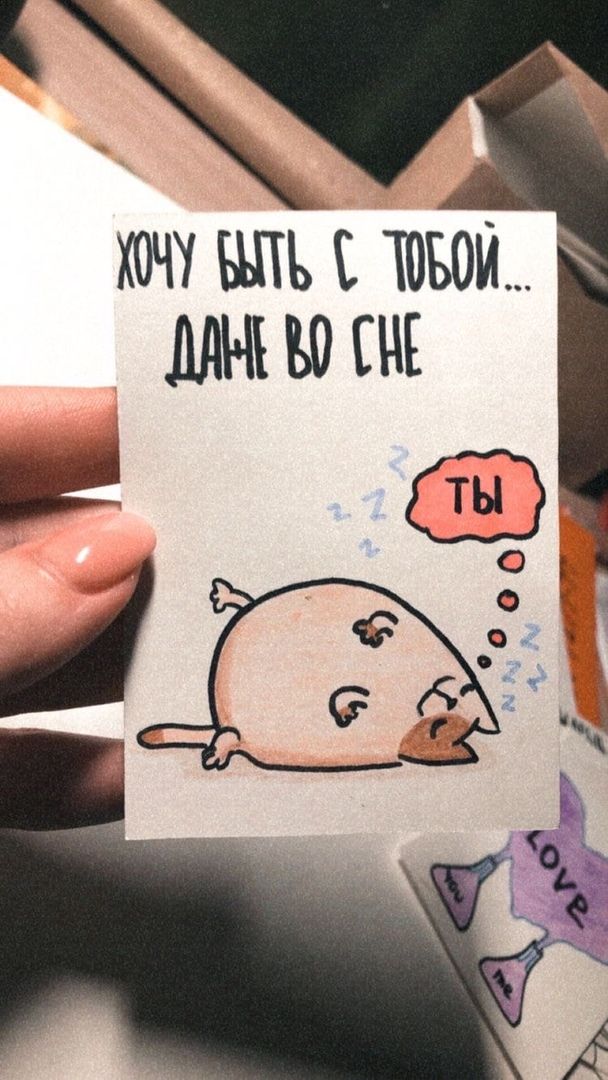 ХОЧУ БЫТЬ С ТОБОЙ...
ДАЖЕ ВО СНЕ
z
z
z
z
ТЫ
z
z
z
z
LOVE
YOU
me